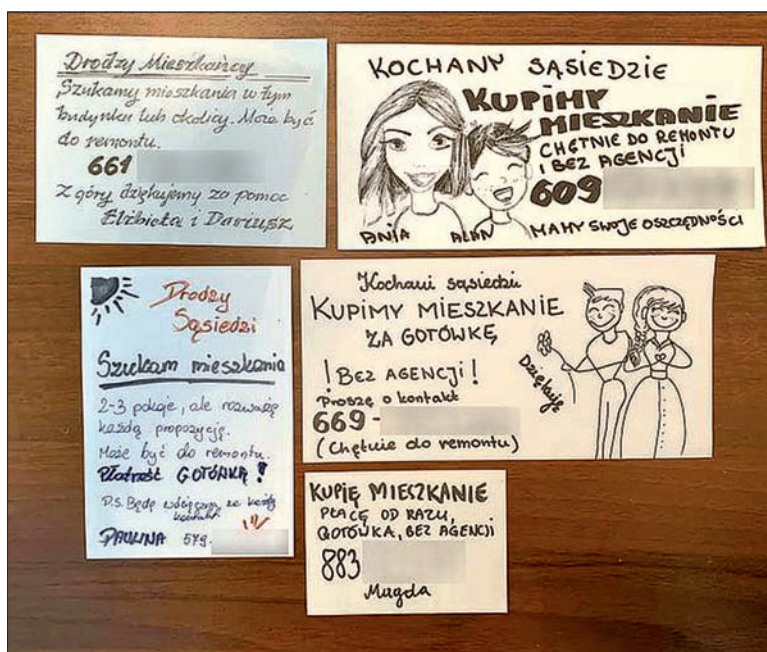 Drodzy Mieszkańcy
Szukamy mieszkania w tym
budynku lub okolicy. Może być
do remontu.
661
Z góry dziękujemy za pomoc
Elżbieta i Dariusz
KOCHANY SĄSIEDZIE
KUPIMY
MIESZKANIE
CHĘTNIE DO REMONTU
I BEZ AGENCJI
609
ANIA ALAN MAMY SWOJE OSZCZĘDNOŚCI
Drodzy
Sąsiedzi
Szukam mieszkania
2-3 pokoje, ale rozważę
każdą propozycję.
Może być do remontu.
Płatność GOTÓWKĄ!
P.S. Będę wdzięczna za każdy
kontakt
PAULINA 579.
Kochani sąsiedzi
KUPIMY MIESZKANIE
ZA GOTÓWKĘ
! BEZ AGENCJI !
Proszę o kontakt
669-
(Chętnie do remontu)
Dziękuję
KUPIĘ MIESZKANIE
PŁACĘ OD RAZU,
GOTÓWKA, BEZ AGENCJI
883
Magda